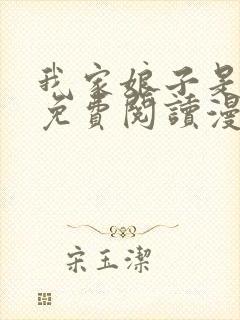 我家娘子是
免費閱讀漫
宋玉潔